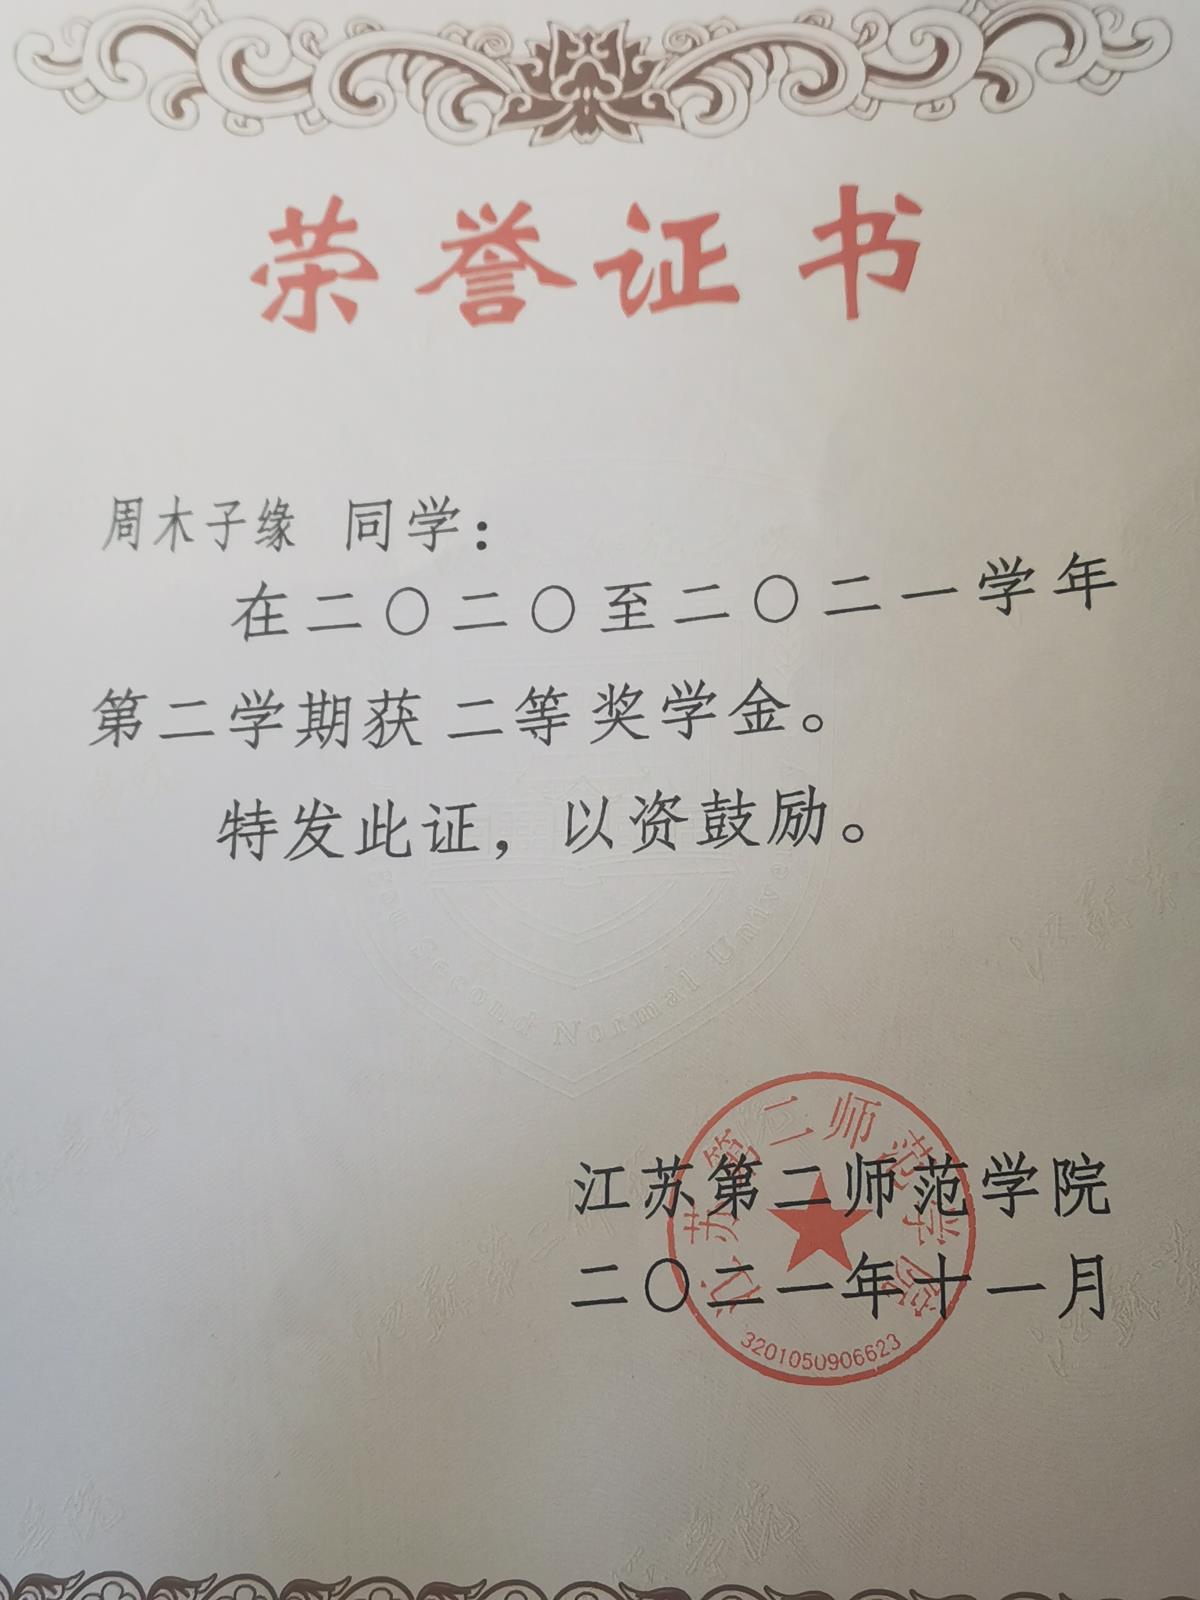 荣誉证书
周木子缘 同学：
在二〇二〇至二〇二一学年
第二学期获 二等 奖学金。
特发此证，以资鼓励。
Second Normal Unive
江苏第二师范学院
二〇二一年十一月
江苏第二师范学院
3201050906623